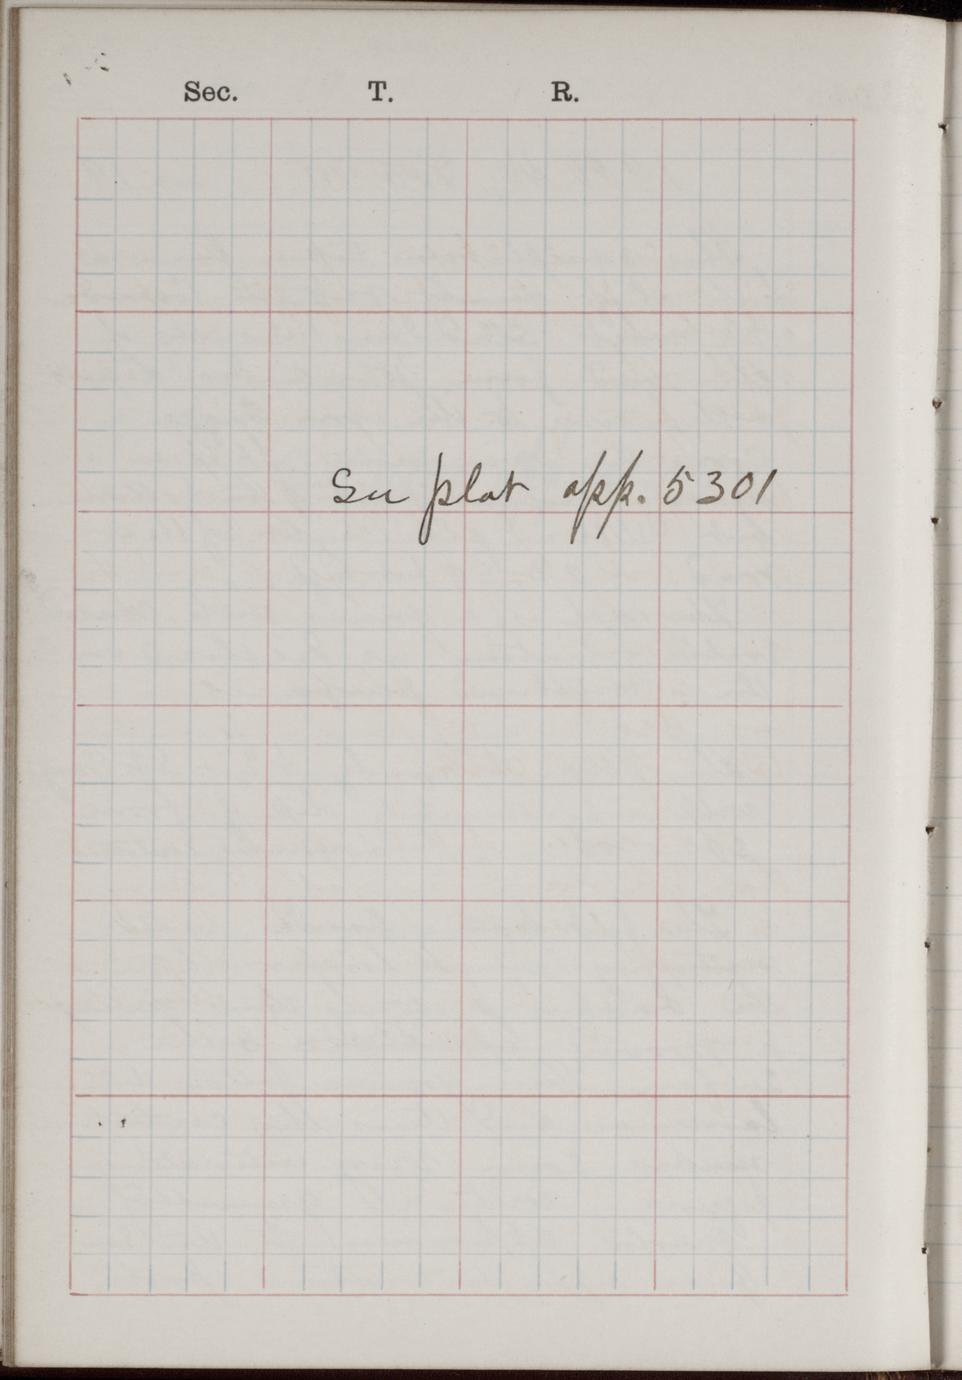 Sec. T. R.
See plat opp. 5301